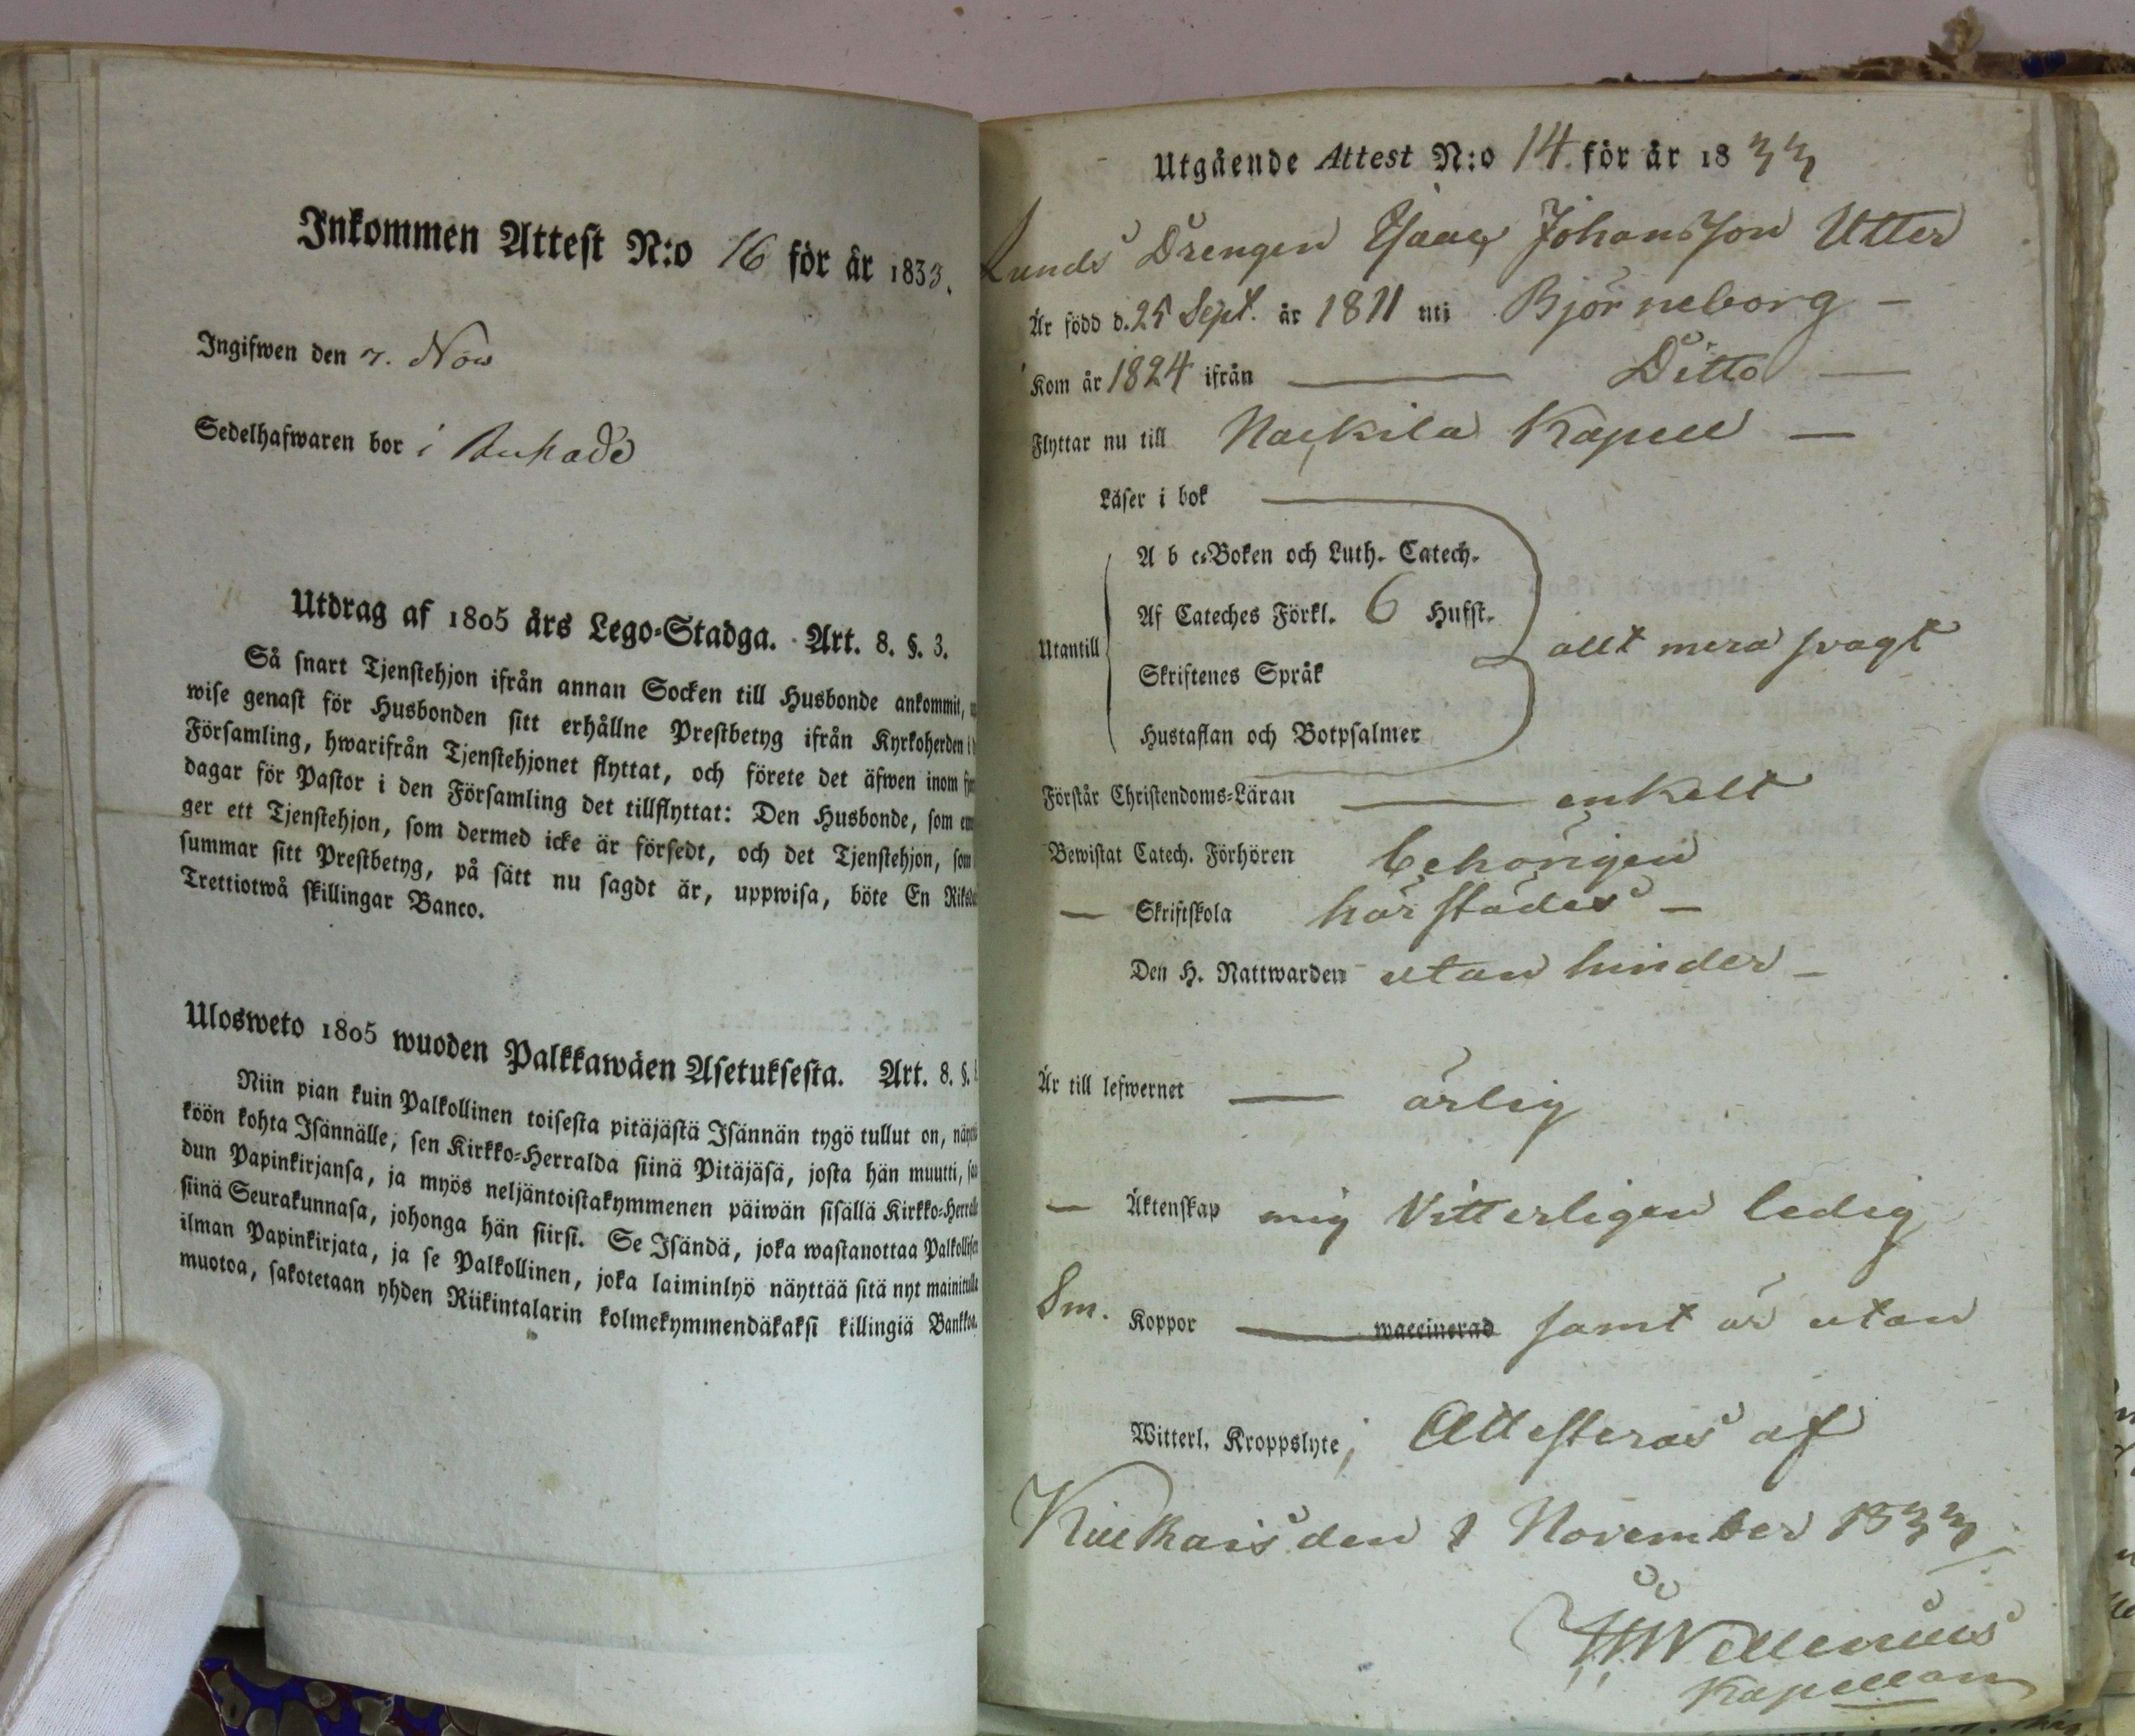 Inkommen Attest N:o 16 för år 1833.
Ingifwen den 7. Nov
Sedelhafwaren bor i
Utdrag af 1805 års Lego-Stadga. Art. 8. §. 3.
Så snart Tjenstehjon ifrån annan Socken till Husbonde ankommit,
wise genast för Husbonden sitt erhållne Prestbetyg ifrån Kyrkoherden i
Församling, hwarifrån Tjenstehjonet flyttat, och förete det äfwen inom
dagar för Pastor i den Församling det tillflyttat: Den Husbonde, som
ger ett Tjenstehjon, som dermed icke är försedt, och det Tjenstehjon, som
summar sitt Prestbetyg, på sätt nu sagdt är, uppwisa, böte En
Trettiotwå skillingar Banco.
Ulosweto 1805 wuoden Palkkawäen Asetuksesta. Art. 8. §.
Niin pian kuin Palkollinen toisesta pitäjästä Isännän tygö tullut on,
köön kohta Isännälle, sen Kirkko-Herralda siinä Pitäjäsä, josta hän muutti,
dun Papinkirjansa, ja myös neljäntoistakymmenen päiwän sisällä Kirkko-
siinä Seurakunnasa, johonga hän siirsi. Se Isändä, joka wastanottaa
ilman Papinkirjata, ja se Palkollinen, joka laiminlyö näyttää sitä nyt mainitulla
muotoa, sakotetaan yhden Riikintalarin kolmekymmendäkaksi killingiä Bankkoa.
Utgående Attest N:o 14. för år 1833
Lunds Drengen Isaac Johansson Utter
Är född d. 25 Sept. år 1811 uti Björneborg —
Kom år 1824 ifrån — Ditto —
Flyttar nu till Nackila Kapell —
Läser i bok —
A b c-Boken och Luth. Catech.
Af Cateches Förkl. 6 Hufst.
Utantill allt mera svagt
Skriftenes Språk
Hustaflan och Botpsalmer
Förstår Christendoms-Läran — enkelt
Bewistat Catech. Förhören behörigen
— Skriftskola härstädes —
Den H. Nattwarden utan hinder —
Är till lefwernet — ärlig
— Äktenskap mig Vitterligen ledig
Sm. Koppor — waccinerad samt är utan
Witterl. Kroppslyte; Attesteras af
Kiukais den 1 November 1833
Wellenius
Kapellan